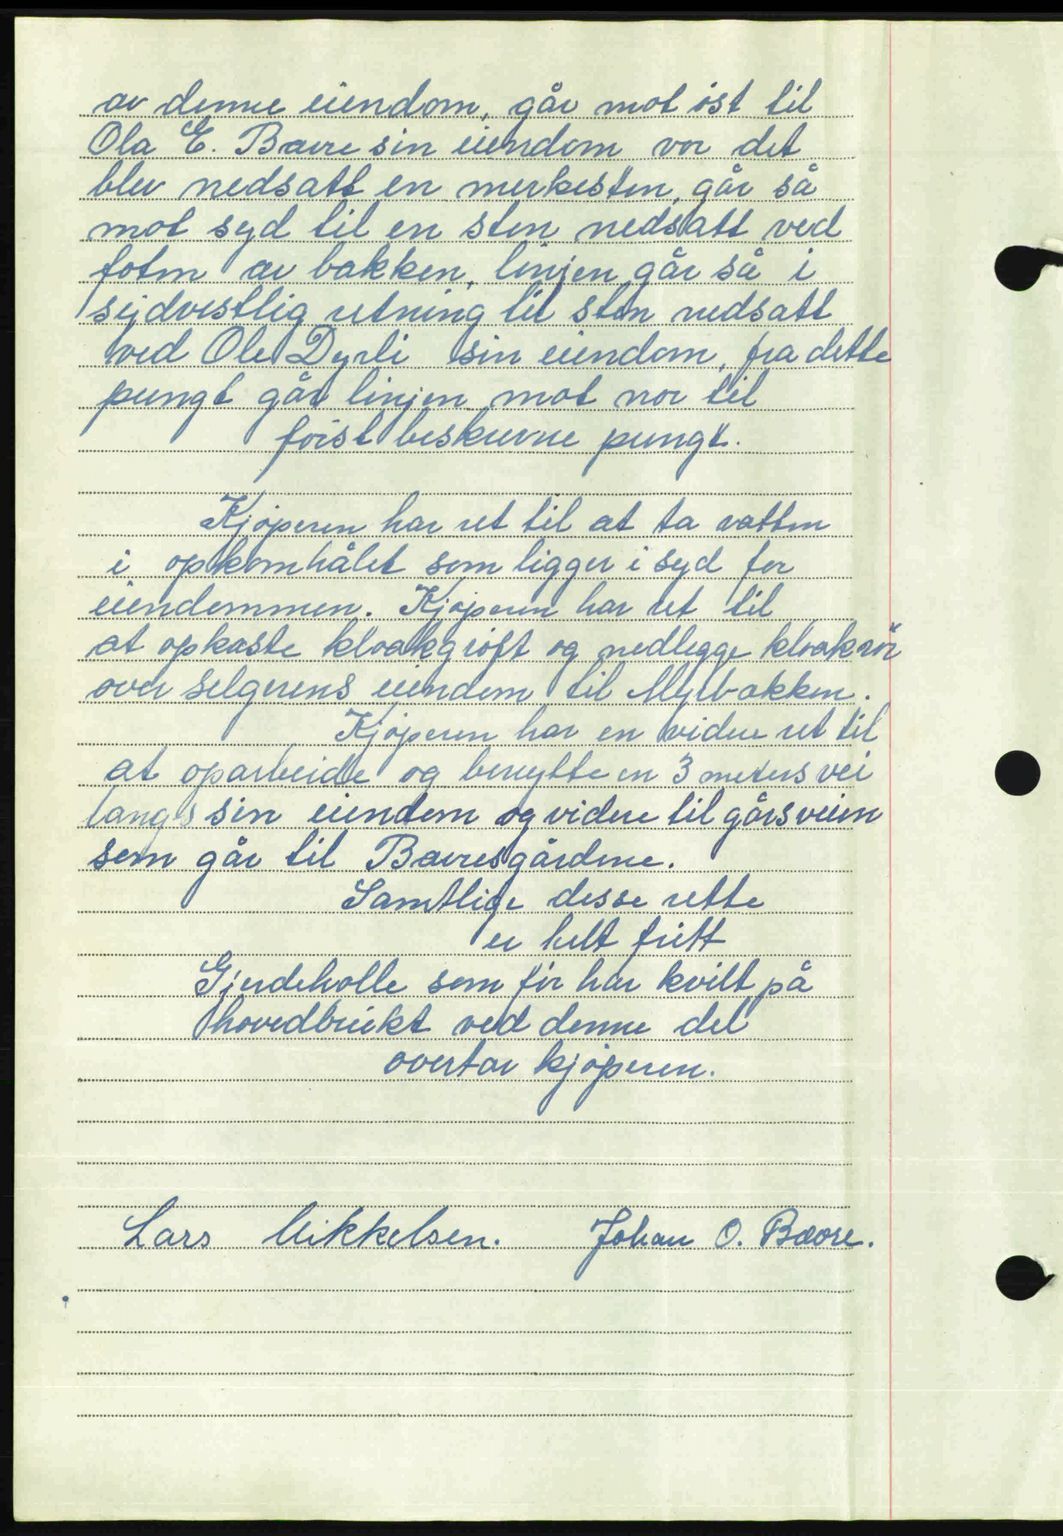 av denne eiendom, går mot øst til
Ola E. Bævre sin eiendom vor det
blev nedsatt en merkesten, går så
mot syd til en sten nedsatt ved
foten av bakken, linjen går så i
sydvestlig retning til sten nedsatt
ved Ole Dyrli sin eiendom, fra dette
pungt går linjen mot nor til
først beskrevne pungt.
Kjøperen har ret til at ta vatten
i opkomhålet som ligger i syd for
eiendommen. Kjøperen har ret til
at opkaste kloakgrøft og nedlegge kloakrør
over selgerens eiendom til Myrbakken.
Kjøperen har en videre ret til
at oparbeide og benytte en 3 meters vei
langs sin eiendom og videre til gårsveien
som går til Bævresgårdene.
Samtlige desse rette
er helt fritt
Gjerdeholle som før har kvilt på
hovedbruket ved denne del
overtar kjøperen.
Lars Mikkelsen. Johan O. Bævre.